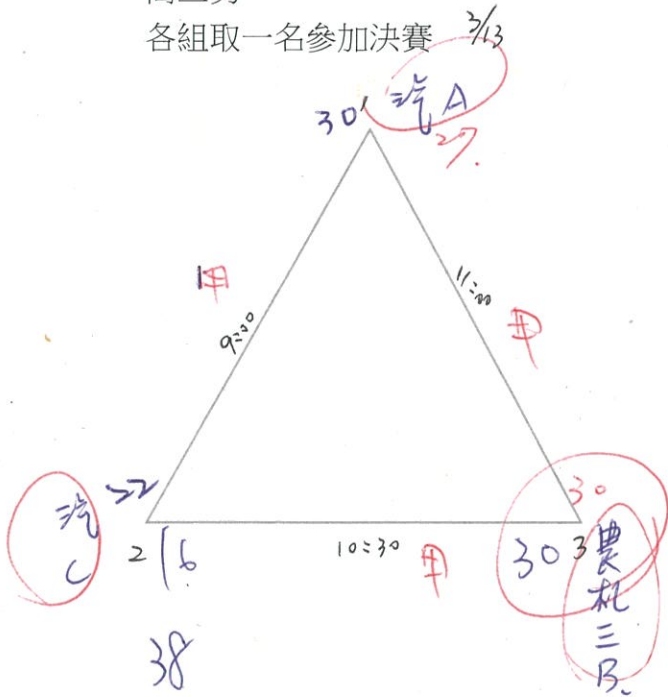 各組取一名參加決賽 3/13
30 1 汽A
27.
甲
9:30
11:00
甲
汽C
22
30
2 16
10:30
甲
30 3
農机三B
38